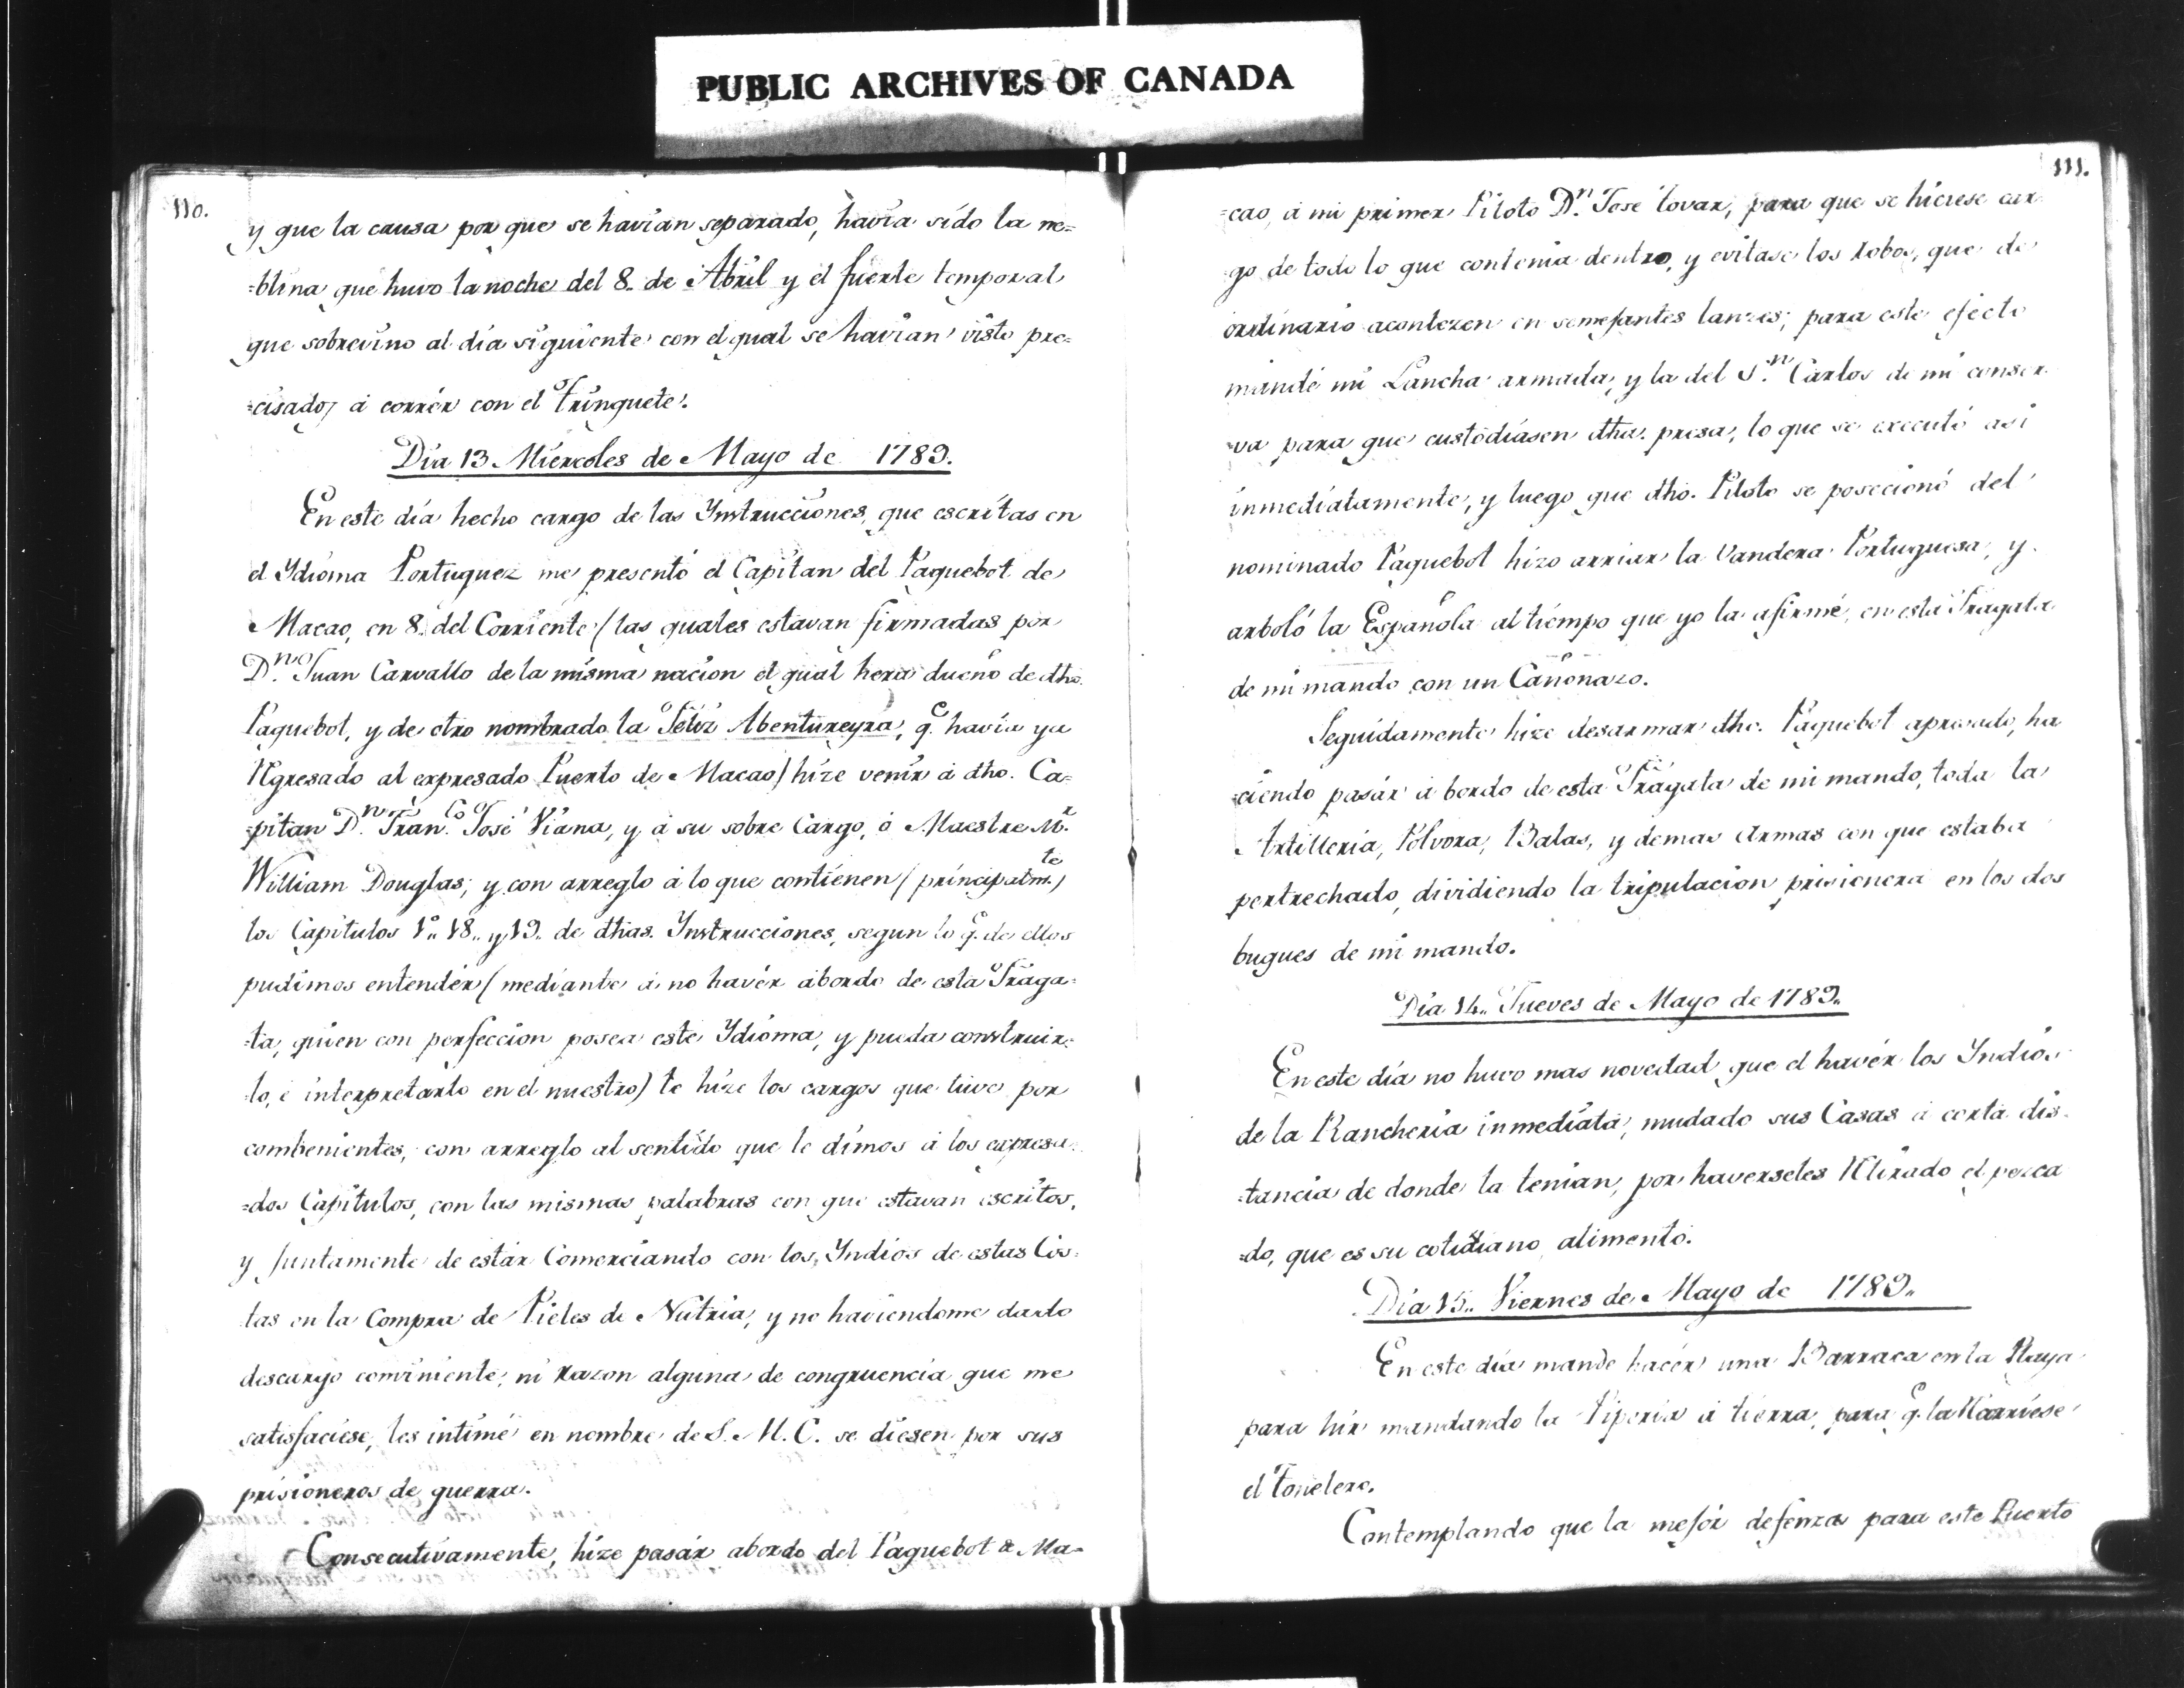 PUBLIC ARCHIVES OF CANADA
110.
y que la causa por que se havian separado, havia sido la ne=
=blina que huvo la noche del 8. de Abril y el fuerte temporal
que sobrevino al dia siguiente con el qual se havian visto pre=
=cisados á corrér con el Trinquete.
Dia 13 Miercoles de Mayo de 1789.
En este dia hecho cargo de las Ynstrucciones, que escritas en
el Ydioma Portuguez me presentó el Capitan del Paquebot de
Macao, en 8. del Corriente (las quales estavan firmadas por
Dn. Juan Carvallo de la misma nacion el qual hera dueño de dho.
Paquebot, y de otro nombrado la Feliz Abentureyra, qe. havia ya
Regresado al expresado Puerto de Macao) hize venir á dho. Ca=
=pitan Dn. Franco. José Viana, y á su sobre Cargo, ó Maestre Mr.
William Douglas; y con arreglo á lo que contienen (principalmte.)
los Capitulos 1º. 18.. y 19.. de dhas. Ynstrucciones, segun lo q. de ellos
pudimos entendér (mediante á no havér abordo de esta Fraga=
=ta, quien con perfeccion posea este Ydioma, y pueda construir=
=lo, é interpretarlo en el nuestro) le hize los cargos que tuve por
combenientes, con arreglo al sentido que le dimos á los expresa=
=dos Capitulos, con las mismas palabras con que estavan escritos,
y juntamente de estár Comerciando con los Yndios de estas Cos=
tas en la Compra de Pieles de Nutria, y no haviendome dado
descargo combiniente, ni razon alguna de congruencia que me
satisfaciese, les intimé en nombre de S. M. C. se diesen por sus
prisioneros de guerra.
Consecutivamente, hize pasár abordo del Paquebot de Ma=
111.
=cao, á mi primer Piloto Dn. José tovar, para que se hiciese car
go de todo lo que contenia dentro, y evitase los robos, que de
ordinario acontezen en semejantes lanzes; para este efecto
mandé mi Lancha armada, y la del Sn. Carlos de mi conser
=va para que custodiasen dha. presa, lo que se executó asi
inmediatamente, y luego que dho. Piloto se posecionó del
nominado Paquebot hizo arriar la Vandera Portuguesa, y
arboló la Española al tiempo que yo la afirmé, en esta Fragata
de mi mando con un Cañonazo.
Seguidamente hize desarmar dho. Paquebot apresado, ha
=ciendo pasár á bordo de esta Fragata de mi mando, toda la
Artilleria, Polvora, Balas, y demas Armas con que estaba
pertrechado, dividiendo la tripulacion prisionera en los dos
buques de mi mando.
Dia 14.. Jueves de Mayo de 1789..
En este dia no huvo mas novedad que el havér los Yndios
de la Rancheria inmediata, mudado sus Casas á corta dis=
=tancia de donde la tenian, por haverseles Retirado el pezca
=do, que es su cotidiano alimento.
Dia 15.. Viernes de Mayo de 1789..
En este dia mandé hacér una Barraca en la Playa
para hir mandando la Piperia á tierra, para qe. la Recorriese
el Tonelero.
Contemplando que la mejór defenza para este Puerto